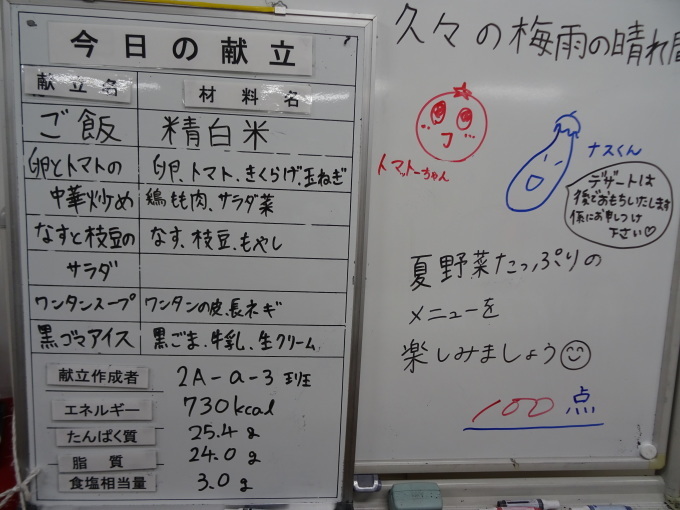 今日の献立
献立名 材料名
ご飯 精白米
卵とトマトの 卵、トマト、きくらげ、玉ねぎ
中華炒め 鶏もも肉、サラダ菜
なすと枝豆の なす、枝豆、もやし
サラダ
ワンタンスープ ワンタンの皮、長ネギ
黒ゴマアイス 黒ごま、牛乳、生クリーム
献立作成者 2A-a-3 班
エネルギー 730kcal
たんぱく質 25.4g
脂質 24.0g
食塩相当量 3.0g
久々の梅雨の晴れ間
トマトーちゃん
ナスくん
デザートは
後でおもちいたします
係にお申しつけ
下さい♡
夏野菜たっぷりの
メニューを
楽しみましょう☺
100点